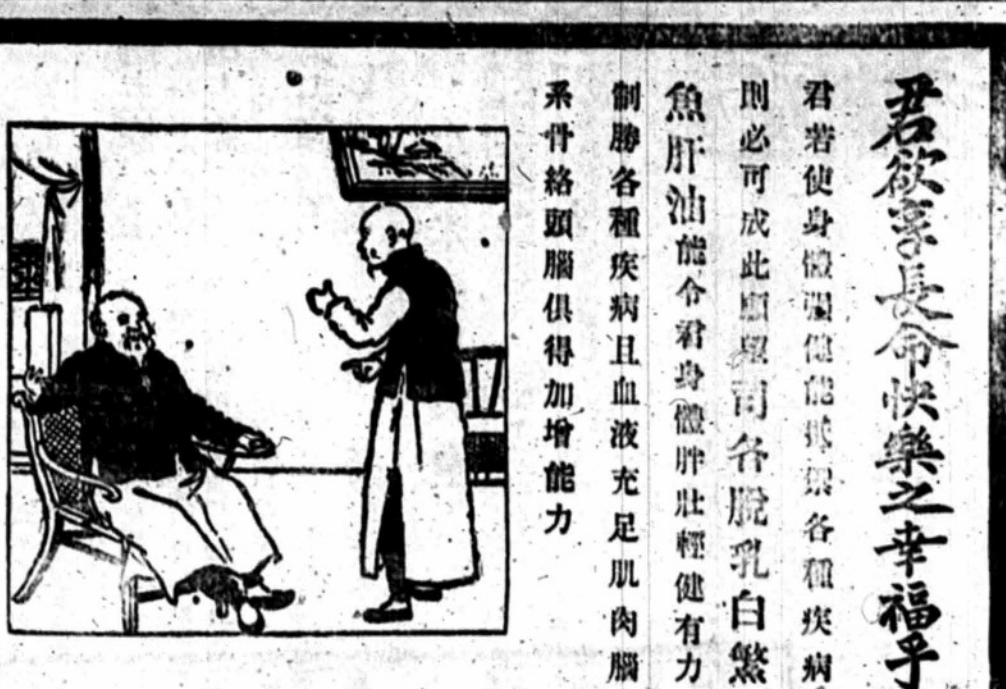 君欲享長命快樂之幸福乎
君若使身體強健能抵禦各種疾病
則必可成此願望司各脫乳白鰵
魚肝油能令君身體胖壯輕健有力
制勝各種疾病且血液充足肌肉腦
系骨絡頭腦俱得加增能力